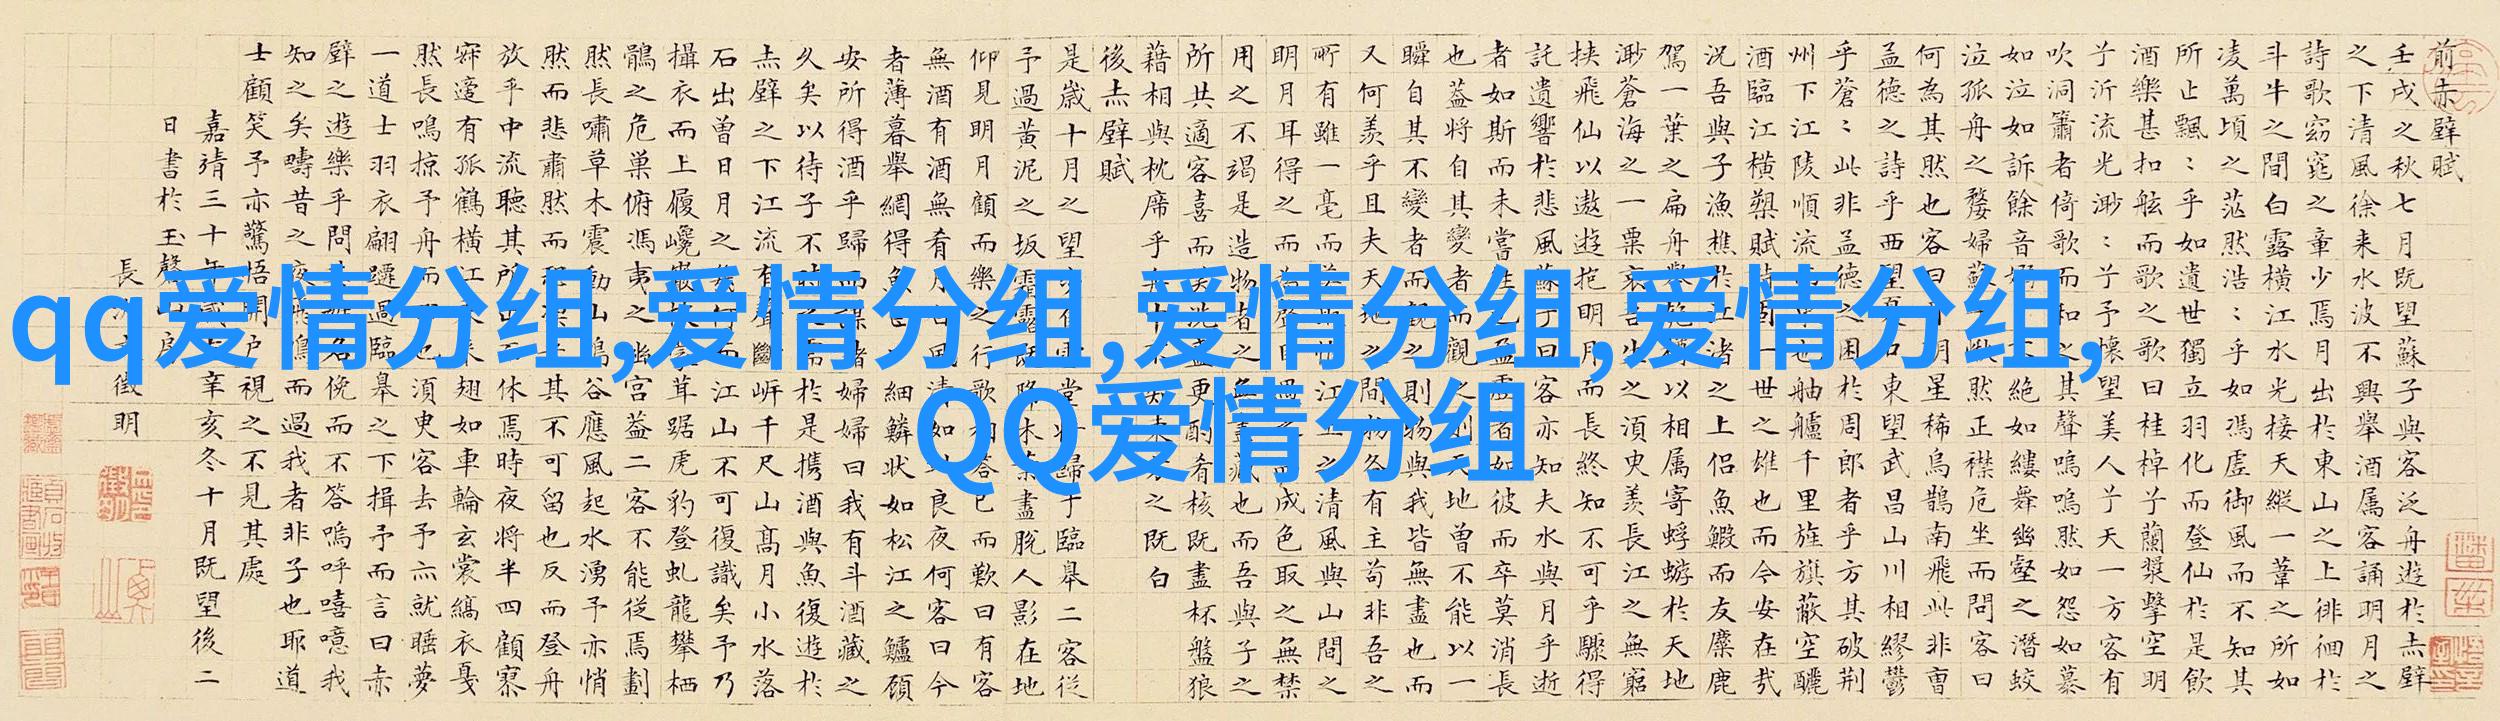 qq爱情分组,爱情分组,爱情分组,爱情分组,
QQ爱情分组
前赤壁賦
壬戌之秋七月既望蘇子與客泛舟遊於赤壁
之下清風徐来水波不興舉酒属客誦明月之
詩歌窈窕之章少焉月出於東山之上徘徊於
斗牛之間白露橫江水光接天縱一葦之所如
凌萬頃之茫然浩〻乎如馮虛御風而不知其
所止飄〻乎如遺世獨立羽化而登仙於是飲
酒樂甚扣舷而歌之歌曰桂棹兮蘭槳擊空明
兮泝流光渺〻兮予懷望美人兮天一方客有
吹洞簫者倚歌而和之其聲嗚嗚然如怨如慕
如泣如訴餘音不絕如縷舞幽壑之潛蛟
泣孤舟之嫠婦蘇然正襟危坐而問客曰
何為其然也客曰明星稀烏鵲南飛此非曹
孟德之詩乎西望口東望武昌山川相繆鬱
乎蒼〻此非孟德之困於周郎者乎方其破荆
州下江陵順流也舳艫千里旌旗蔽空釃
酒臨江橫槊賦詩固一世之雄也而今安在哉
况吾與子漁樵於江渚之上侶魚鰕而友麋鹿
駕一葉之扁舟以相属寄蜉蝣於天地
渺蒼海之一粟哀吾生之須臾羨長江之無窮
挾飛仙以遨遊抱明月而長終知不可乎驟得
託遺響於悲風蘇子曰客亦知夫水與月乎逝
者如斯而未嘗者如彼而卒莫消長
也蓋將自其變者而觀之則天地曾不能以一
瞬自其不變者而觀之則物與我皆無盡也而
又何羨乎且夫天地之間物各有主苟非吾之
所有雖一毫而江上之清風與山間之
明月耳得之而為聲目成色取之無禁
用之不竭是造物者之無盡藏也而吾與子之
所共適客喜而笑洗盞更酌肴核既盡杯盤狼
藉相與枕席乎東方之既白
後赤壁賦
是歲十月之望歸于臨皋二客從
予過黃泥之坂霜露既木葉盡脫人影在地
仰見明月顧而樂之行歌相答已而歎曰有客
無酒有酒無肴月白風清如此良夜何客曰今
者薄暮舉網得魚細鱗狀如松江之鱸顧
安所得酒乎歸而謀諸婦婦曰我有斗酒藏之
久矣以待子不時於是攜酒與魚復遊於
赤壁之下江流有聲斷岍千尺山高月小水落
石出曾日月之幾何而江山不可復識矣予乃
攝衣而上履巉巖茸踞虎豹登虬龍攀栖
鶻之危巢俯馮夷之幽宮蓋二客不能從焉劃
然長嘯草木震動山鳴谷應風起水湧予亦悄
然而悲肅然而其不可留也反而登舟
放乎中流聽其所止休焉時夜將半四顧寂
寥適有孤鶴橫江来翅如車輪玄裳縞衣戛
然長鳴掠予舟而也須臾客去予亦就睡夢
一道士羽衣翩躚過臨皋之下揖予而言曰赤
壁之遊樂乎問名俛而不答嗚呼噫嘻我
知之矣疇昔之夜飛鳴而過我者非子也耶道
士顧笑予亦驚悟開戶視之不見其處
嘉靖三十年歲辛亥冬十月既望後二
日書於玉磬山房
長徵明